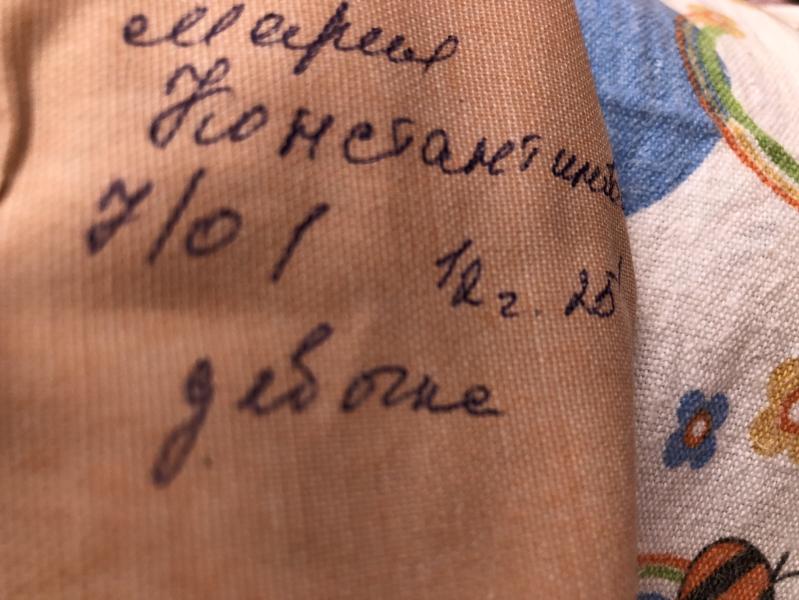 Мария
Константин
7/01 12 г. 25'
девочка